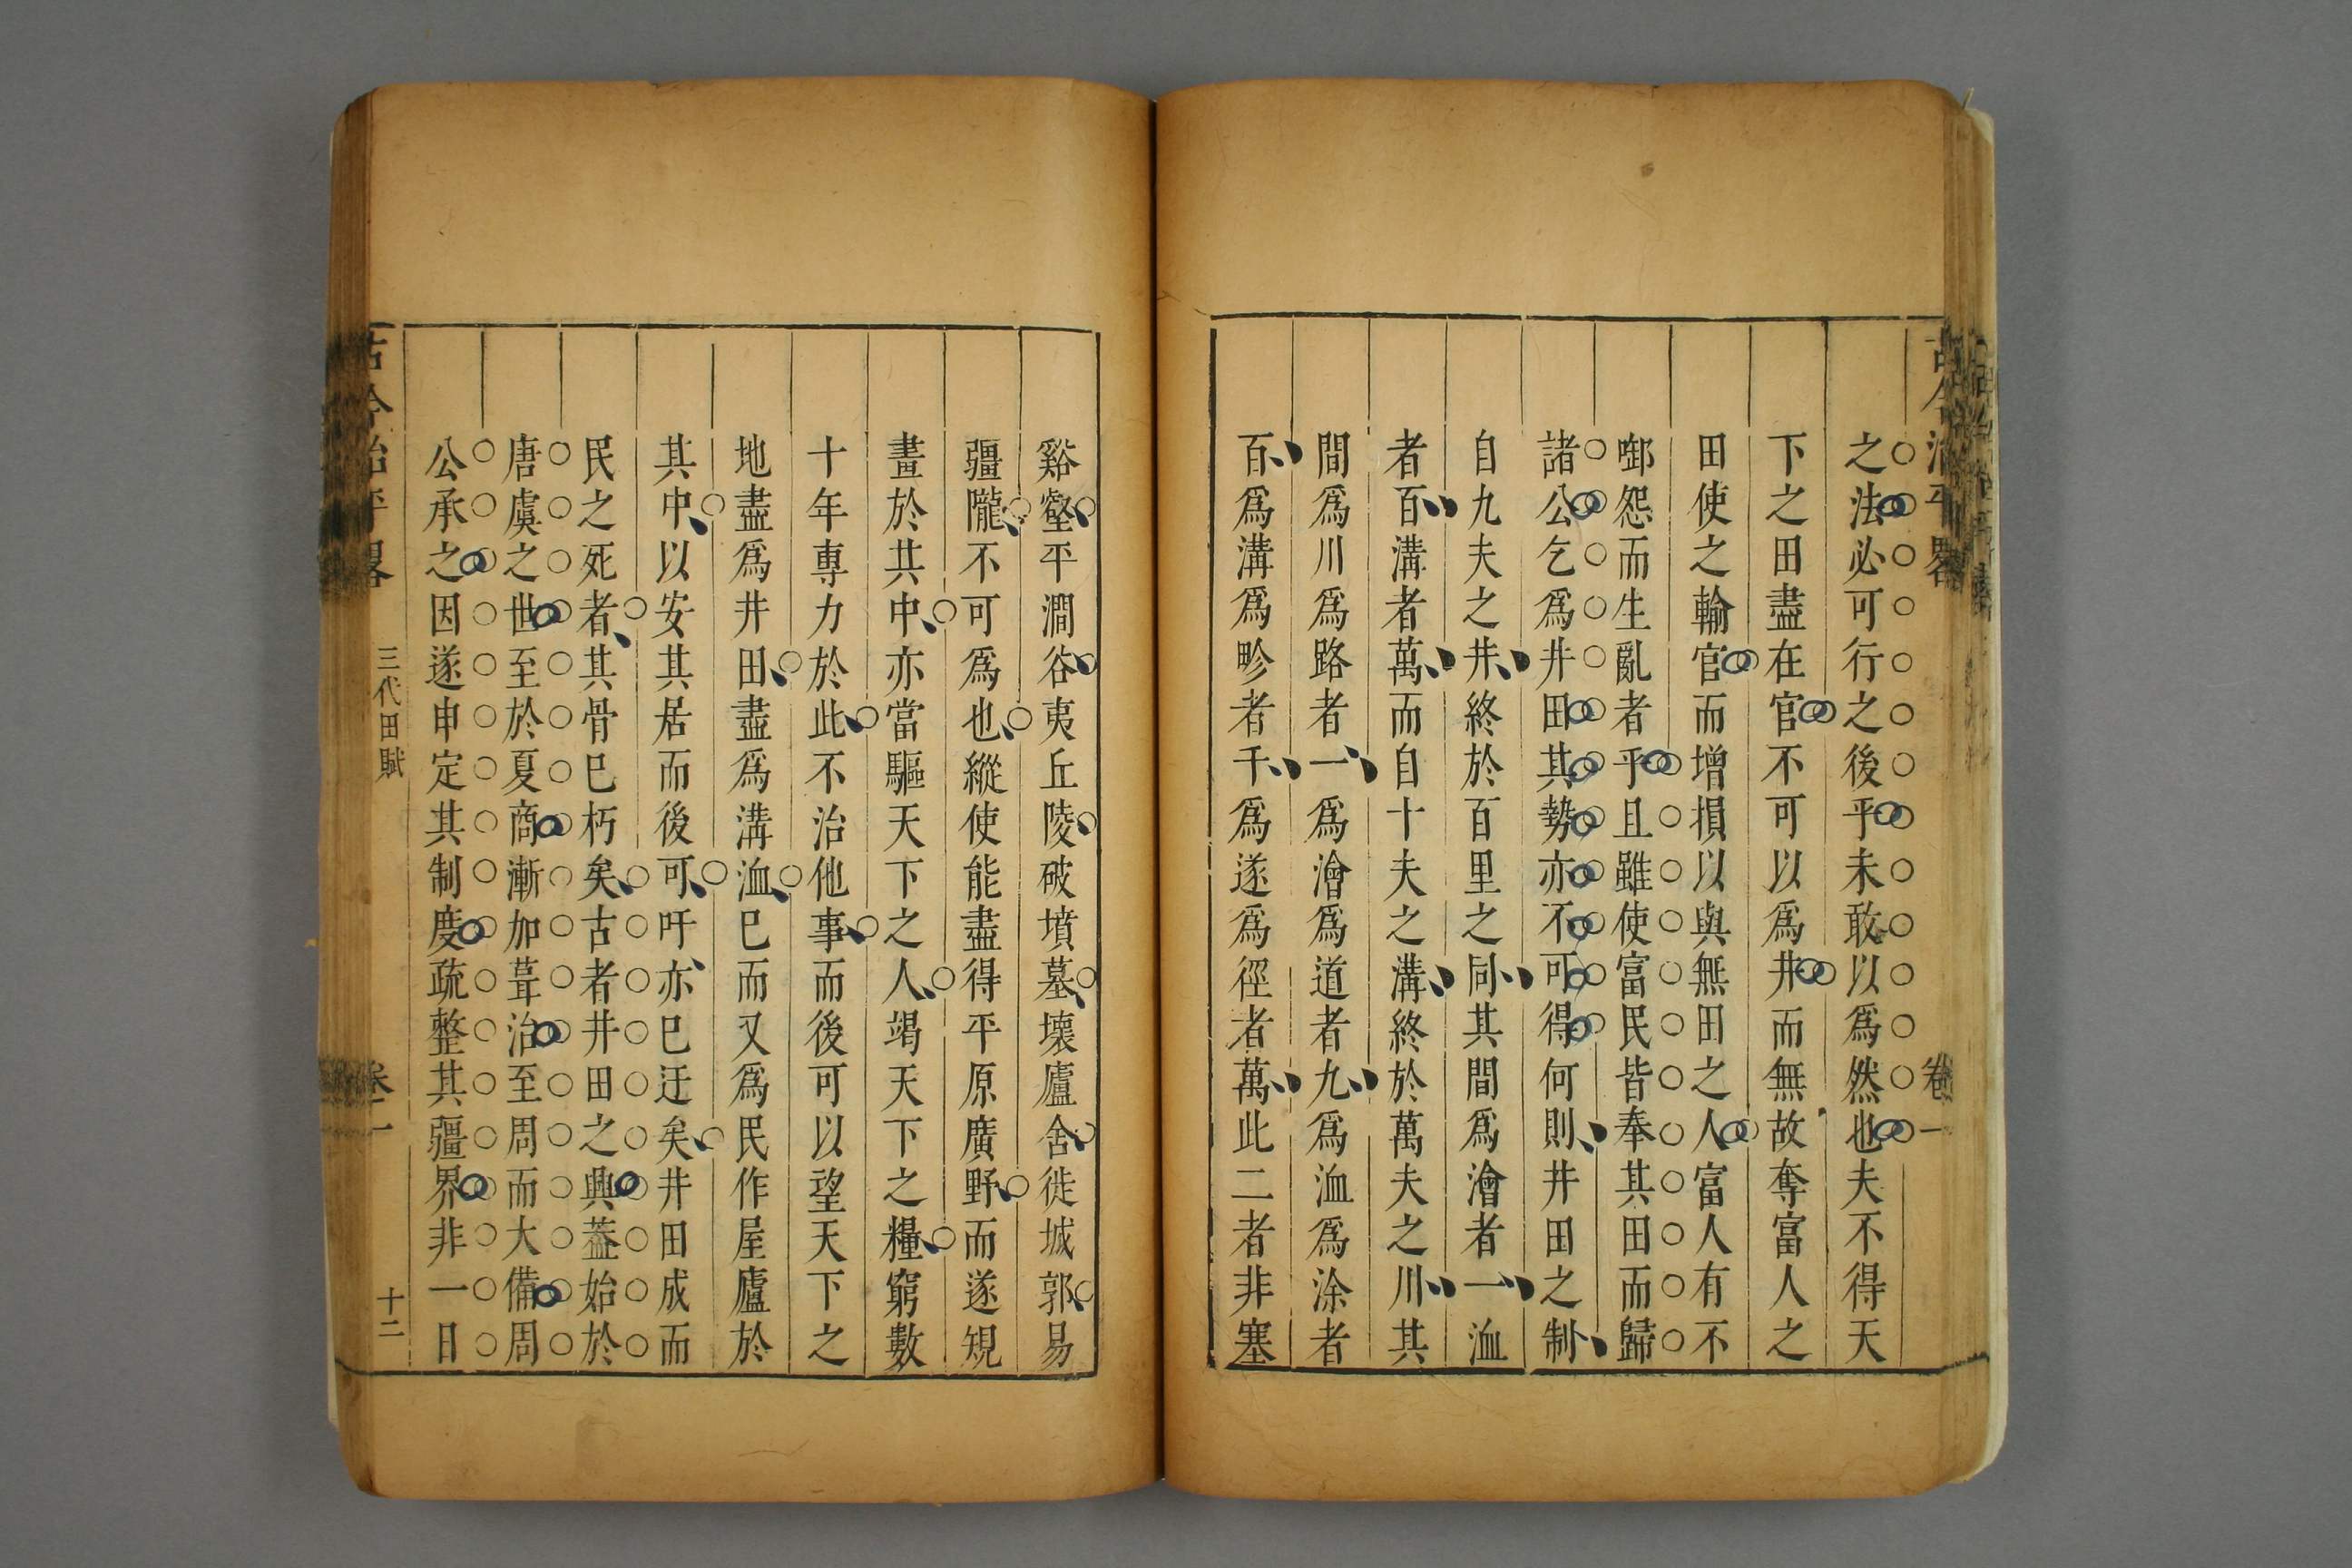 古今治平畧
卷一
之法必可行之後乎未敢以爲然也夫不得天
下之田盡在官不可以爲井而無故奪富人之
田使之輸官而增損以與無田之人富人有不
啣怨而生亂者乎且雖使富民皆奉其田而歸
諸公乞爲井田其勢亦不可得何則井田之制
自九夫之井終於百里之同其間爲澮者一洫
者百溝者萬而自十夫之溝終於萬夫之川其
間爲川爲路者一爲澮爲道者九爲洫爲涂者
百爲溝爲畛者千爲遂爲徑者萬此二者非塞
谿壑平澗谷夷丘陵破墳墓壞廬舍徙城郭易
疆隴不可爲也縱使能盡得平原廣野而遂規
畫於其中亦當驅天下之人竭天下之糧窮數
十年專力於此不治他事而後可以望天下之
地盡爲井田盡爲溝洫巳而又爲民作屋廬於
其中以安其居而後可吁亦巳迂矣井田成而
民之死者其骨巳朽矣古者井田之興葢始於
唐虞之世至於夏商漸加葺治至周而大備周
公承之因遂申定其制度疏整其疆界非一日
古今治平畧
三代田賦
卷一
十二